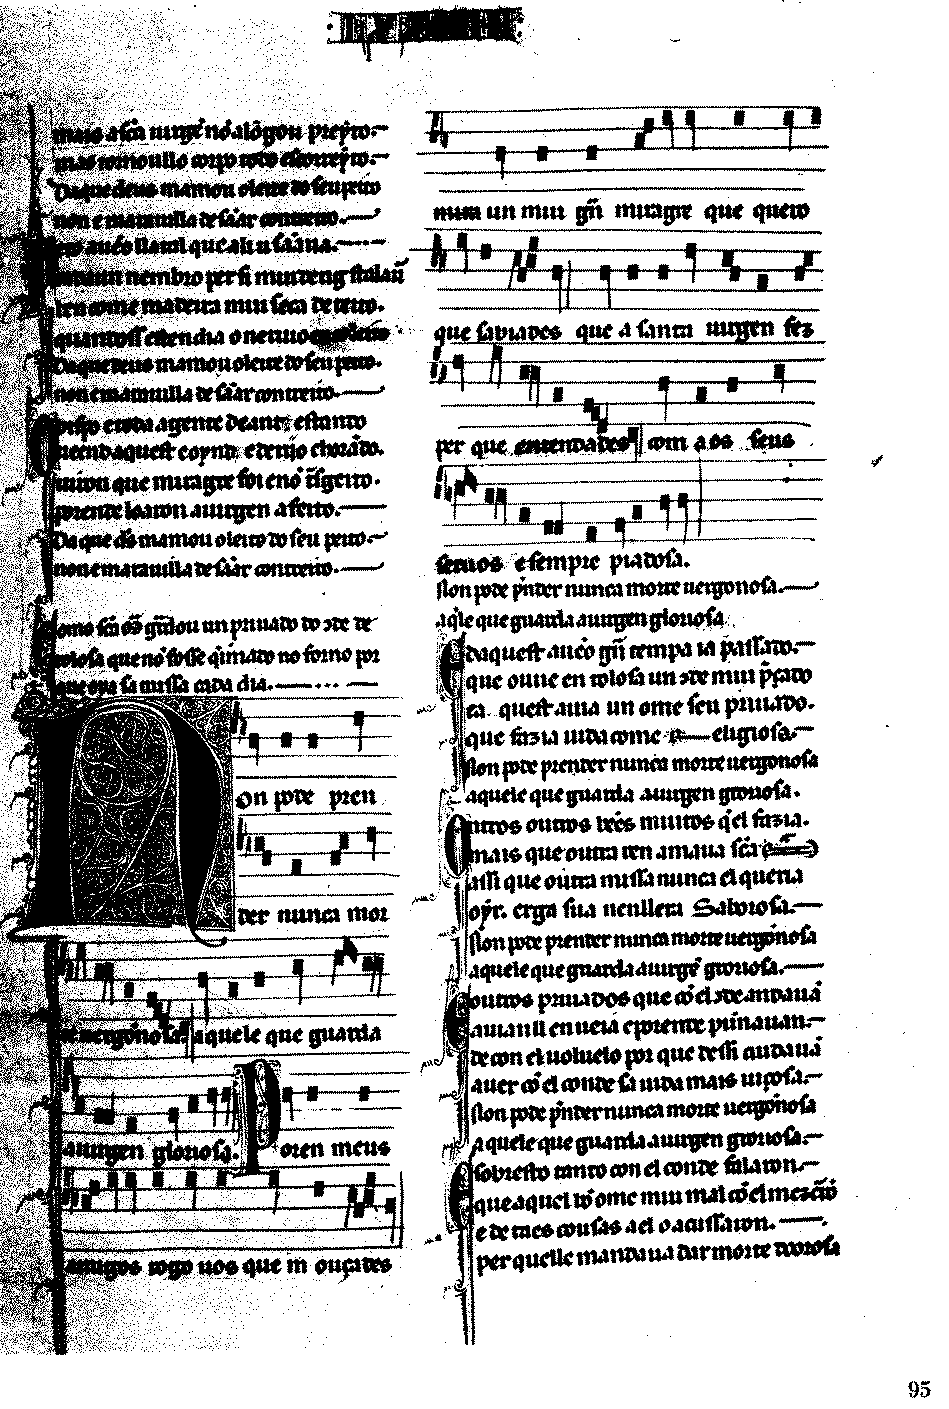 mais a sc̃a uirgẽ nõ alõgou preyto.
mas tornoullo corpo todo
Da que deus mamou o leite do seu peito
non e marauilla de sãar contreito.
que ali u sãaua.
nembro per si mui de rrig estalaũ
ben come madeira mui seca de teito.
quandoss estendia o neruio
Da que deus mamou o leite do seu peito.
non e marauilla de sãar contreito.
e toda a gente deant estando
ueend aquest e oynd e de rijo chorãdo.
uiron que miragre foi e nõ trasgeito.
porende loaron a uirgen afeito.
Da que d̃s mamou o leito do seu peito.
non e marauilla de sãar contreito.
Como sc̃a guardou un priuado do conde de
tolosa que nõ fosse q̃imado no forno por
que oya sa missa cada dia.
Non pode pren
der nunca mor
te uergonnosa. aquele que guarda
a uirgen gloriosa. Poren meus
amigos rogo uos que m ouçades
mui un mui gñ miragre que quero
que sabiades que a santa uirgen fez
per que entendades com aos seus
seruos e sempre piadosa.
Non pode p̃nder nunca morte uergonosa.
aq̃le que guarda a uirgen gloriosa
E daquest auẽo gñ tempa ia passado.
que ouue en tolosa un conde mui p̃çado
ca quest auia un ome seu priuado.
que fazia uida come religiosa.
Non pode prender nunca morte uergonosa
aquele que guarda a uirgen groriosa.
Ontros outros bẽes muitos q̃ el fazia.
mais que outra ren amaua sc̃a
assi que outra missa nunca el queria
oyr. erga sua nen ll era Saborosa.
Non pode prender nunca morte uergonosa
aquele que guarda a uirgẽ groriosa.
E outros priuados que cõ el conde andauã
auian ll enueia e porende punnauan.
de con el uoluelo por que dessi cuidauã
auer cõ el conde sa uida mais uiçosa.
Non pode p̃nder nunca morte uergonosa
aquele que guarda a uirgen groriosa.
E sobresto tanto con el conde falaron.
que aquel bõ ome mui mal cõ el mezcrarõ
e de taes cousas a el o acussaron.
per quelle mandaua dar morte dooroſa
95